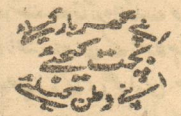 اپنے گھر بار کیلئے
بچت کیجئے
اپنے وطن کیلئے